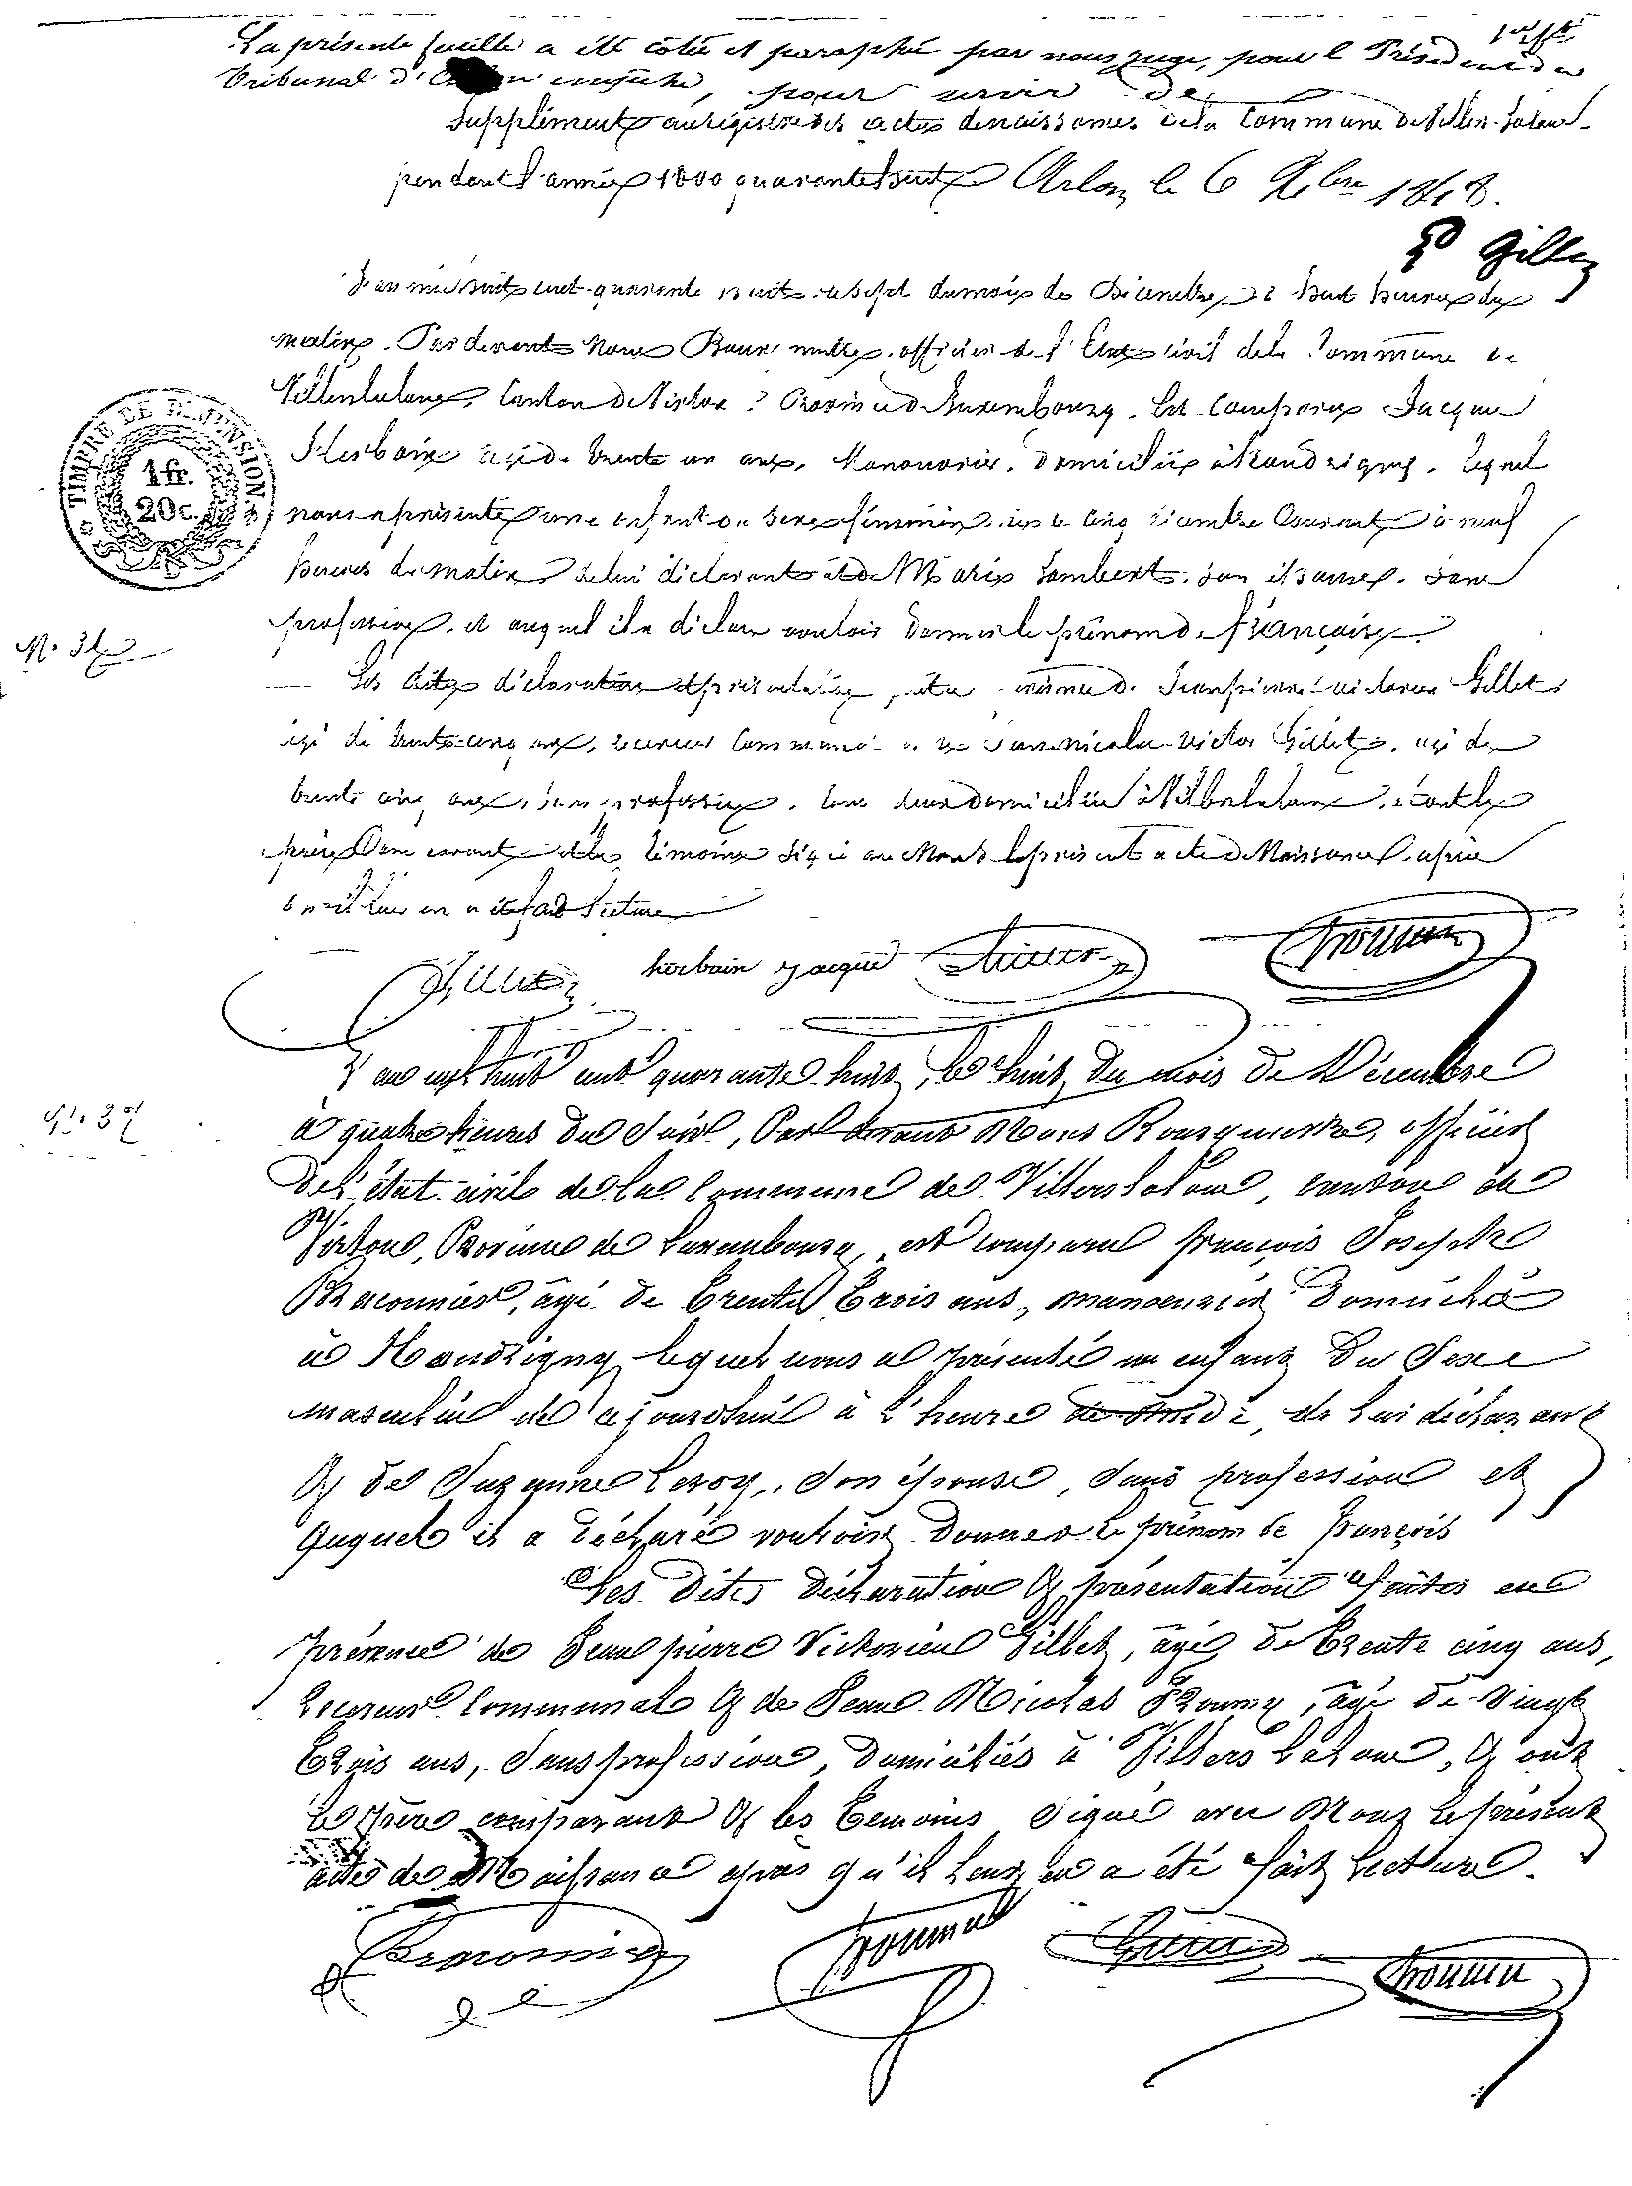 La présente feuille a été côtée et paraphée par nous juge, pour le Président du
Tribunal d' pour servir de
Supplément au régistre des actes de naissances de la Commune de Villers-Lalou
pendant l'année 1800 quarante huit Arlon le 6 Xbre 1848.
Gille
L'an mil huit cent quarante huit le sept du mois de Décembre à huit heures du
matin. Par devant Nous officier de l'Etat civil de la Commune de
Canton de Virton, Province de Luxembourg. Est Comparu Jacque
TIMBRE DE DIMENSION.
1 fr.
20 c.
Herbain agé de trente un ans, Manouvrier, domicilié à Houdrigny, lequel
nous a présenté une enfant du sexe féminin, née le cinq Décembre Courant à neuf
heures du matin de lui déclarant et de Marie Lambert, son épouse, sans
profession, et auquel il a déclaré vouloir donner le prénom de Françoise
N° 36
Les dites déclaration et présentation, faites en présence de Jean pierre Victorien Gillet,
agé de trente-cinq ans, receveur Communal et de Jean nicolas Victor Gillet, agé de
trente cinq ans, sans profession, tous deux domiciliés à Villerslaloue, et ont le
père Comparant et les témoins signé avec Nous le présent acte de Naissance, après
qu'il leur en a été fait lecture
Gillet herbain jacque
L'an mil huit cent quarante huit, le huit du mois de Décembre
N° 37
à quatre heures du soir, Par devant Nous officier
de l'état civil de la Commune de Villers laloue, canton de
Virton, Province de Luxembourg, est comparu François Joseph
Braconnier, âgé de trente trois ans, manoeuvrier domicilié
à Houdrigny lequel nous a présenté un enfant du Sexe
masculin né aujourdhui à l'heure de midi, de lui déclarant
& de Suzanne Leroy, son épouse, sans profession et
auquel il a déclaré vouloir donner le prénom de François
Les dites déclaration & présentation faites en
présence de Jean pierre Victorien Gillet, âgé de trente cinq ans,
receveur Communal & de Jean Nicolas âgé de vingt
trois ans, sans profession, domiciliés à Villers laloue, & ont
le père comparant & les témoins signé avec Nous le présent
acte de Naissance après qu'il leur en a été fait lecture.
Braconnier